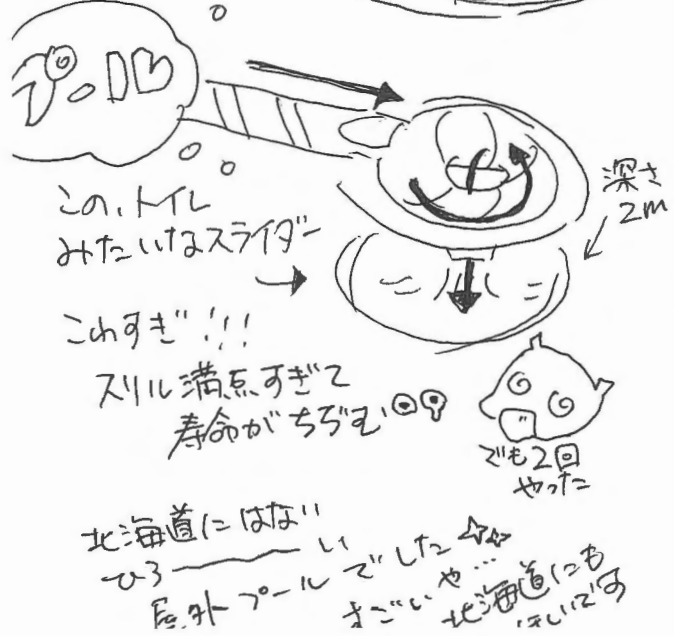 プールめ
深さ
2m
この、トイレ
みたいなスライダー
こわすぎ!!!
スリル満点すぎて
寿命がちぢむ
でも2回
やった
北海道にはない
ひろーい
屋外プールでした
すごいや…
北海道にも
ほしいです